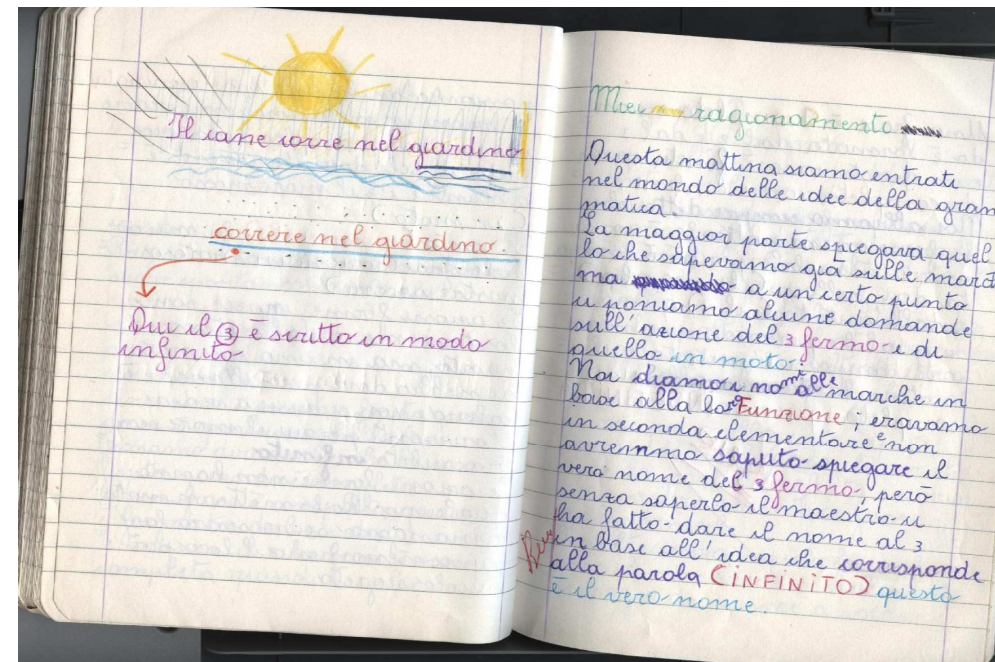 Il cane corre nel giardino
correre nel giardino.
Qui il ③ è scritto in modo
infinito
Mio ragionamento
Questa mattina siamo entrati
nel mondo delle idee della gram
matica.
La maggior parte spiegava quel
lo che sapevamo già sulle marc
ma a un certo punto
ci poniamo alcune domande
sull'azione del 3 fermo e di
quello in moto.
Noi diamo i nomi alle marche in
base alla loro Funzione; eravamo
in seconda elementare e non
avremmo saputo spiegare il
vero nome del 3 fermo, però
senza saperlo il maestro ci
ha fatto dare il nome al 3
in base all'idea che corrisponde
alla parola (INFINITO) questo
è il vero nome.